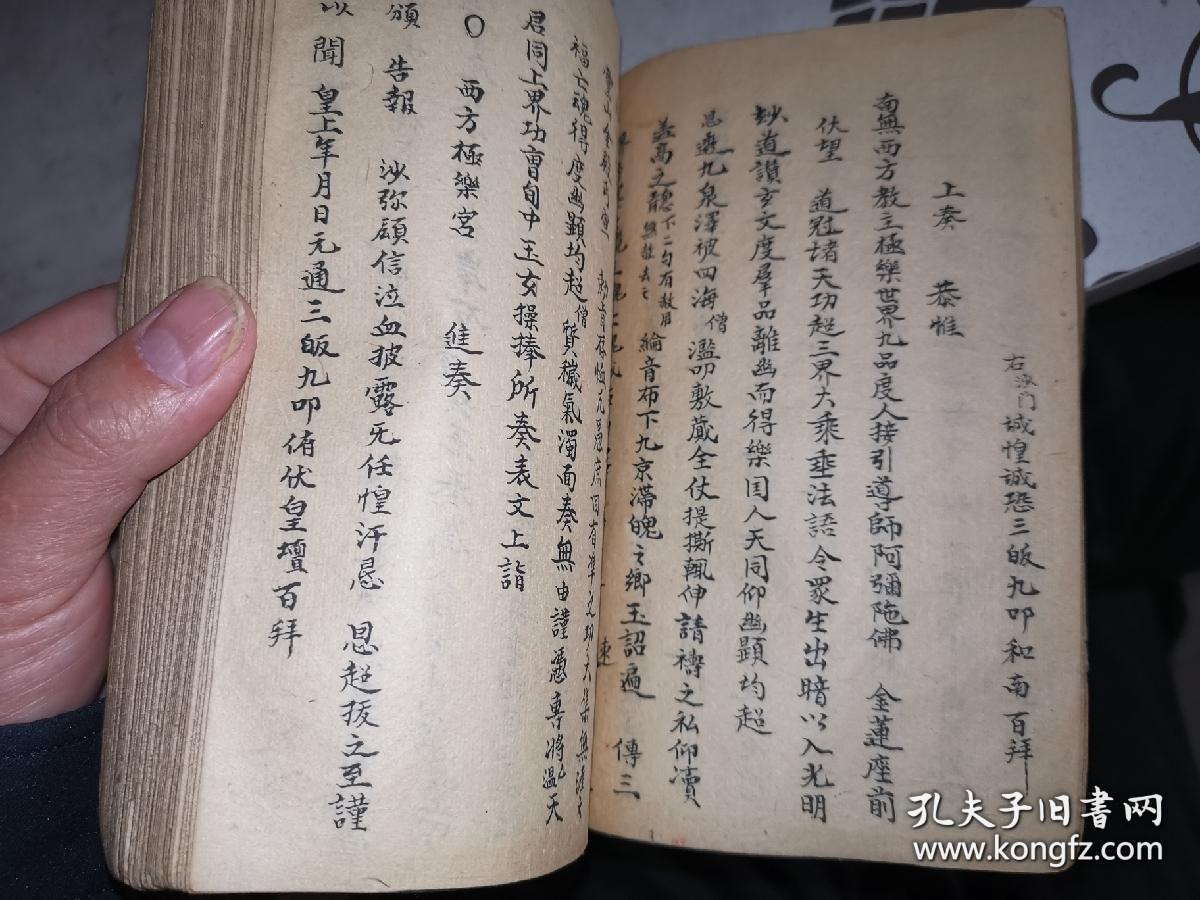 右沙门 城惶诚恐三皈九叩和南百拜
上奏 恭惟
南無西方教主極樂世界九品度人接引導師阿彌陁佛 金蓮座前
伏望 道冠堵天功超三界大乘埀法語令眾生出暗以入光明
妙道讃玄文度羣品離幽而得樂囯人天同仰幽顯均超
恩遶九泉澤被四海僧濫叨敷蕆全仗提撕輒伸請禱之私仰凟
盖高之聽下二句有赦用無赦去之 綸音布下九京滯魄之鄉玉詔遍 傳三
福亡魂得度幽顯均超僧 質穢氣濁面奏無由謹慿專將 溫天
君同上界功曹旬中玉女操捧所奏表文上詣
〇 西方極樂宮 進奏
頒 告報 沙弥顧信泣血披露无任惶汗恳 恩超拔之至謹
以 聞 皇上年月日元通三皈九叩俯伏皇壇百拜
孔夫子旧书网
www.kongfz.com